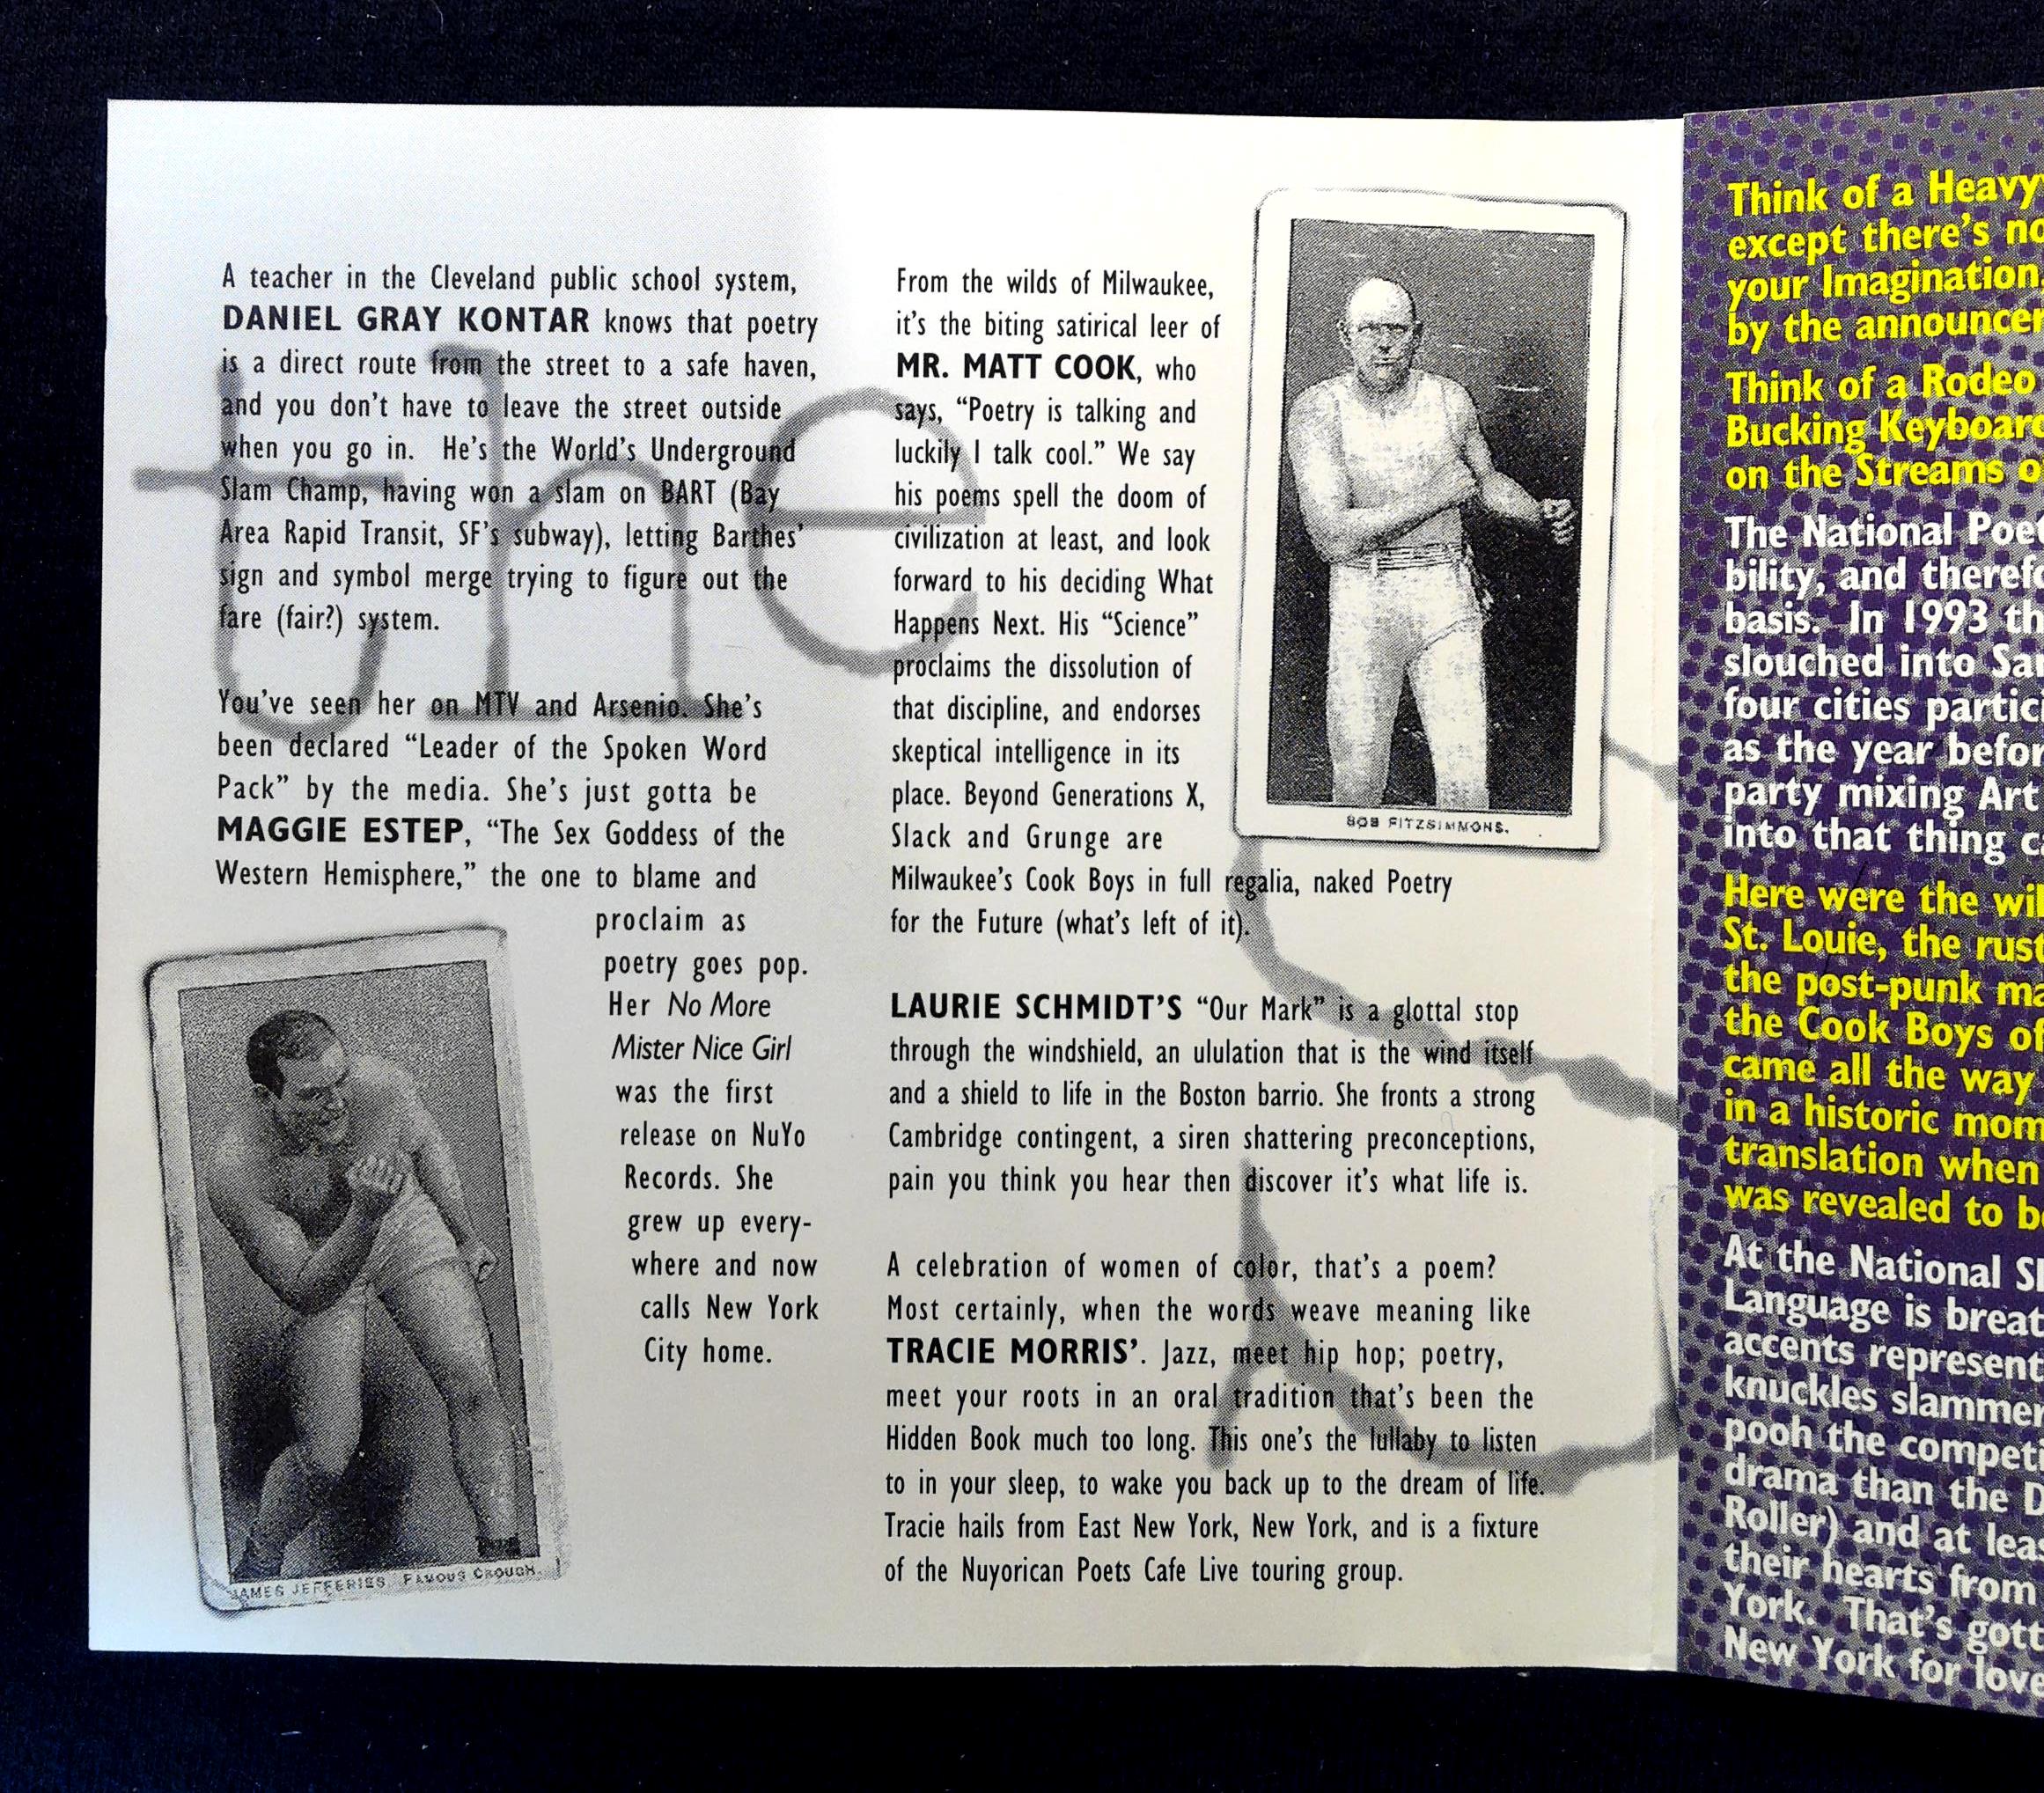 A teacher in the Cleveland public school system,
DANIEL GRAY KONTAR knows that poetry
is a direct route from the street to a safe haven,
and you don't have to leave the street outside
when you go in. He's the World's Underground
Slam Champ, having won a slam on BART (Bay
Area Rapid Transit, SF's subway), letting Barthes'
sign and symbol merge trying to figure out the
fare (fair?) system.
You've seen her on MTV and Arsenio. She's
been declared “Leader of the Spoken Word
Pack” by the media. She's just gotta be
MAGGIE ESTEP, “The Sex Goddess of the
Western Hemisphere,” the one to blame and
proclaim as
poetry goes pop.
Her No More
Mister Nice Girl
was the first
release on NuYo
Records. She
grew up every-
where and now
calls New York
City home.
JAMES JEFFERIES, FAMOUS CROUCH.
the
From the wilds of Milwaukee,
it's the biting satirical leer of
MR. MATT COOK, who
says, “Poetry is talking and
luckily I talk cool.” We say
his poems spell the doom of
civilization at least, and look
forward to his deciding What
Happens Next. His “Science”
proclaims the dissolution of
that discipline, and endorses
skeptical intelligence in its
place. Beyond Generations X,
Slack and Grunge are
Milwaukee's Cook Boys in full regalia, naked Poetry
for the Future (what's left of it).
BOB FITZSIMMONS.
LAURIE SCHMIDT'S “Our Mark” is a glottal stop
through the windshield, an ululation that is the wind itself
and a shield to life in the Boston barrio. She fronts a strong
Cambridge contingent, a siren shattering preconceptions,
pain you think you hear then discover it's what life is.
A celebration of women of color, that's a poem?
Most certainly, when the words weave meaning like
TRACIE MORRIS’. Jazz, meet hip hop; poetry,
meet your roots in an oral tradition that's been the
Hidden Book much too long. This one's the lullaby to listen
to in your sleep, to wake you back up to the dream of life.
Tracie hails from East New York, New York, and is a fixture
of the Nuyorican Poets Cafe Live touring group.
Think of a Heavy
except there's no
your Imagination,
by the announcer
Think of a Rodeo
Bucking Keyboard
on the Streams o
The National Poe
bility, and therefo
basis. In 1993 th
slouched into Sa
four cities partici
as the year befor
party mixing Art
into that thing c
Here were the wil
St. Louie, the rust
the post-punk ma
the Cook Boys of
came all the way
in a historic mom
translation when
was revealed to b
At the National Sl
Language is breat
accents represent
knuckles slammer
pooh the competi
drama than the D
Roller) and at leas
their hearts from
York. That's gott
New York for love